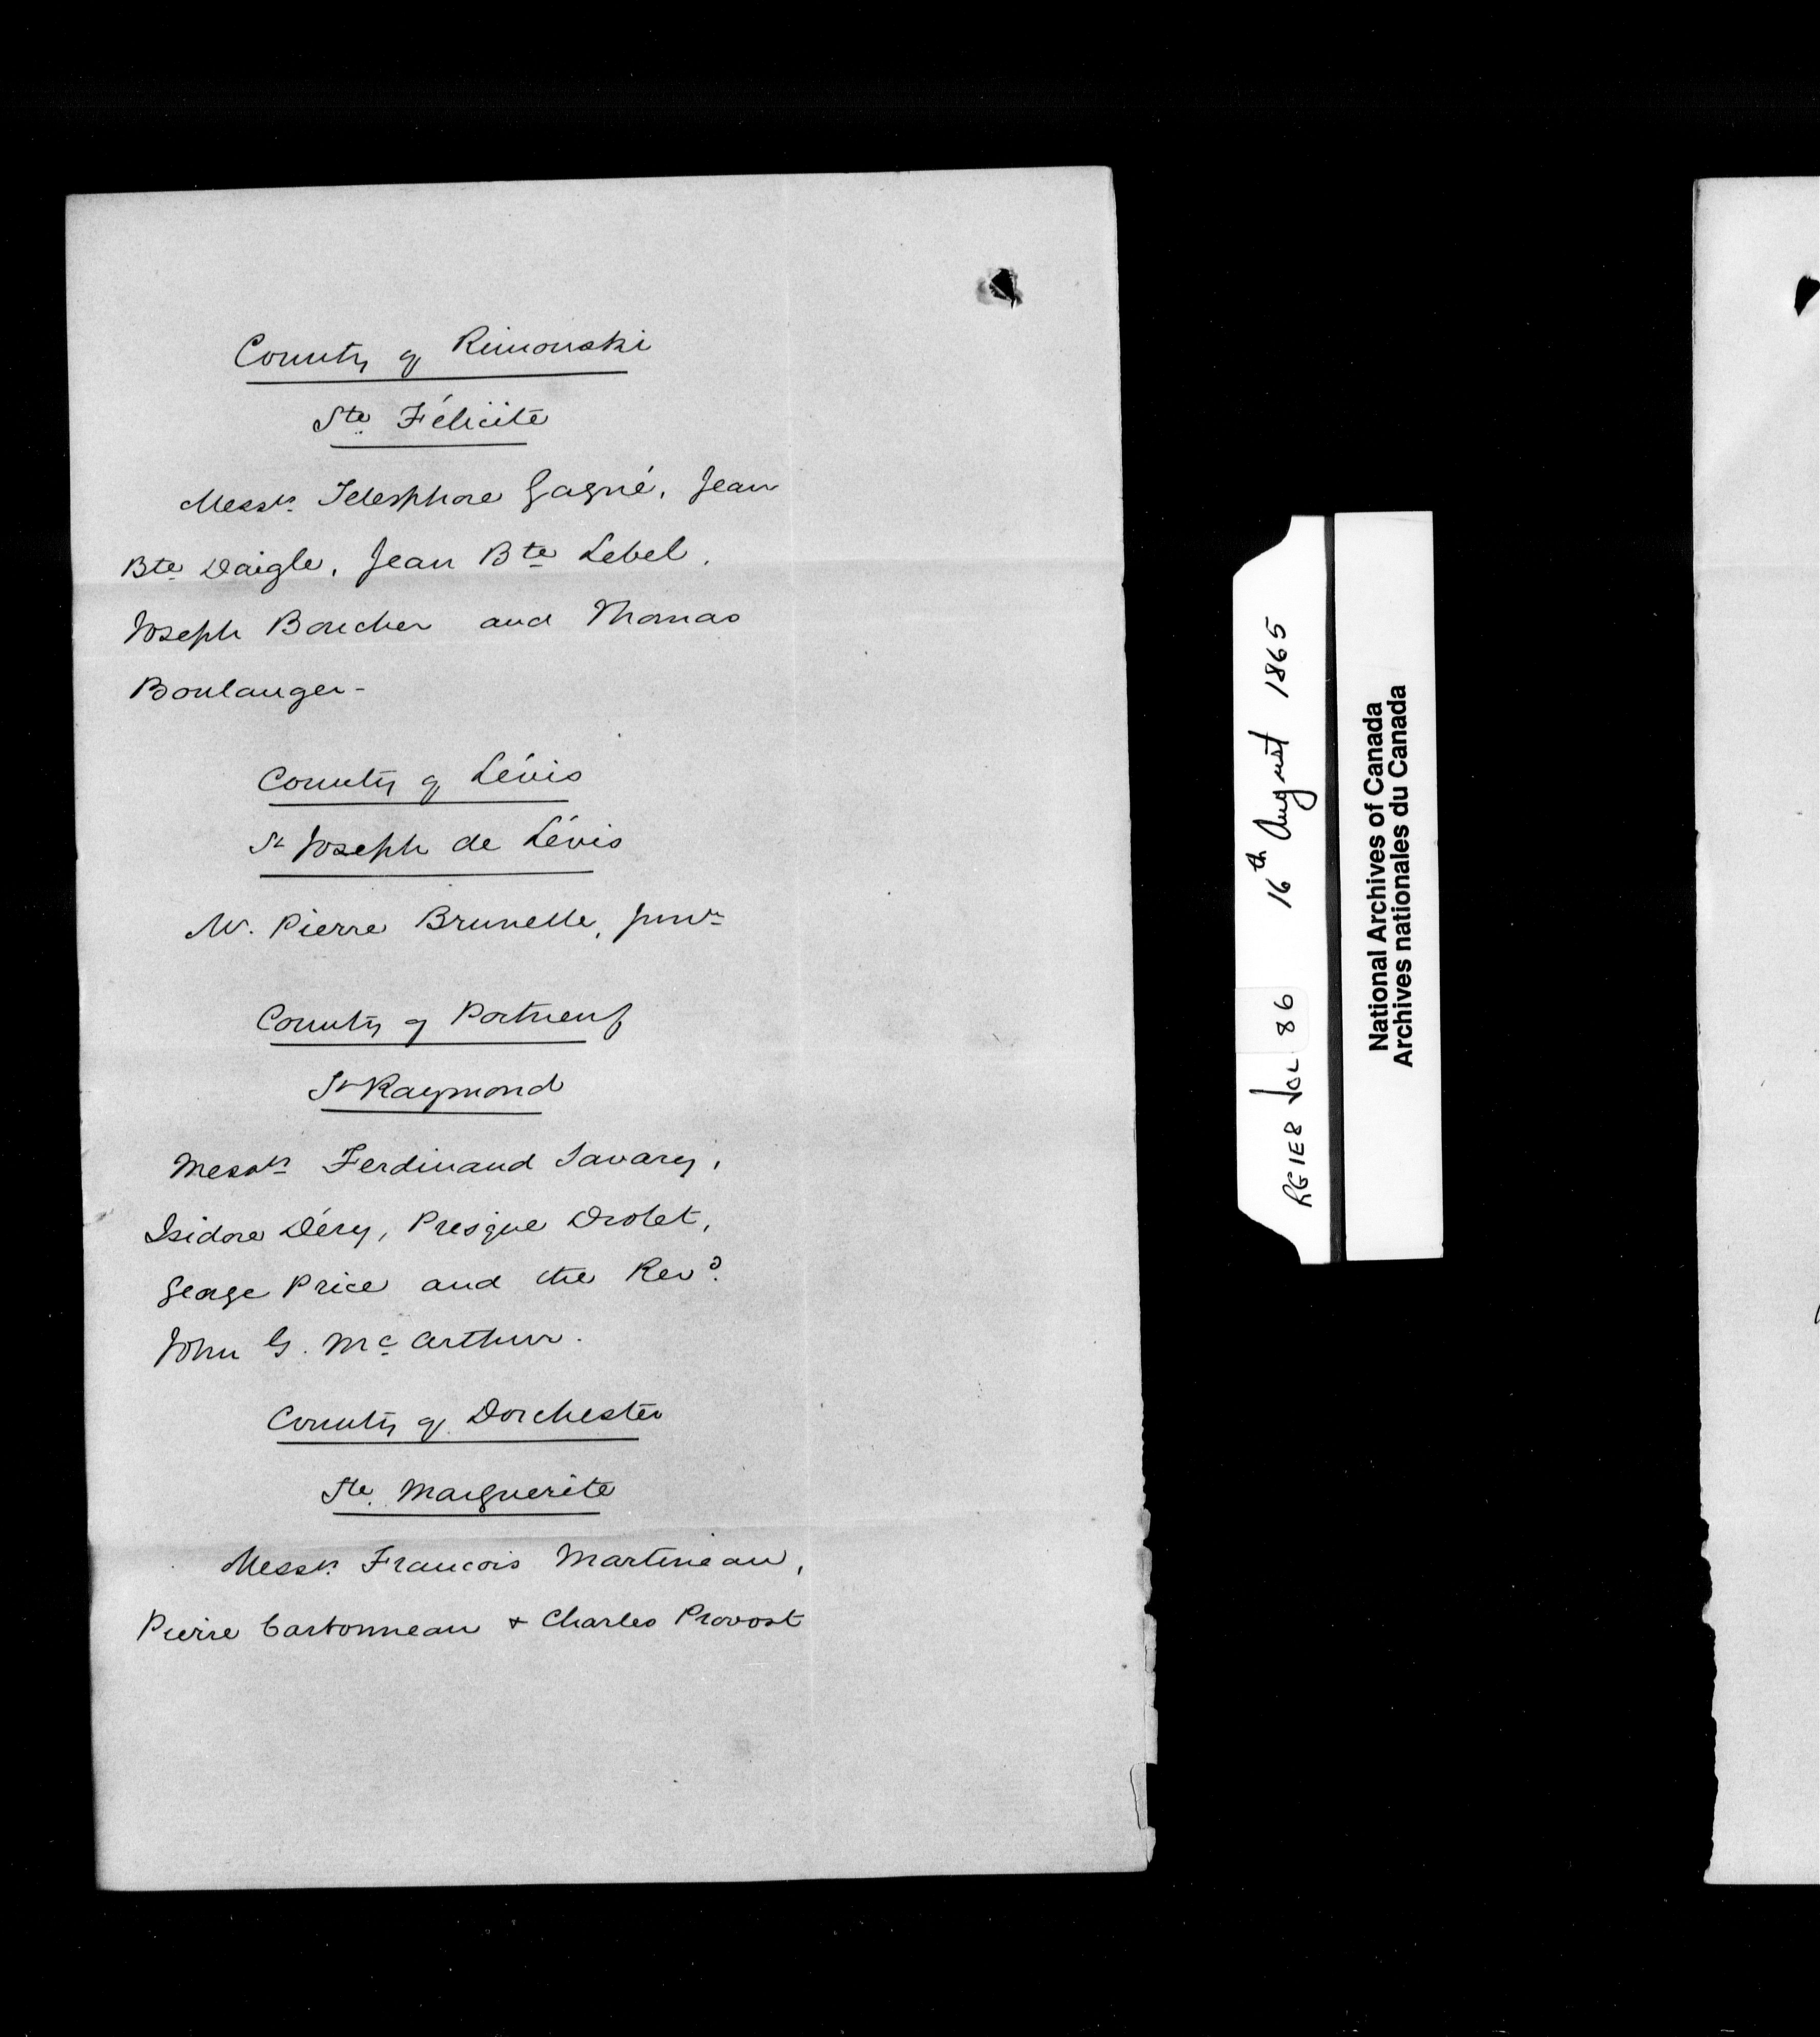 County of Rimouski
Ste Félicité
Messrs Telesphore Gagné, Jean
Bte Daigle, Jean Bte Lebel,
Joseph Boucher and Thomas
Boulanger -
County of Lévis
St Joseph de Lévis
Mr. Pierre Brunelle, Junr
County of Portneuf
St Raymond
Messrs Ferdinand Savary,
Isidore Déry, Presque Drolet,
George Price and the Revd.
John G. Mc Arthur.
County of Dorchester
Ste. Marguerite
Messrs. Francois Martineau,
Pierre Carbonneau + Charles Provost
RG1E8 Vol 86 16th August 1865
National Archives of Canada
Archives nationales du Canada